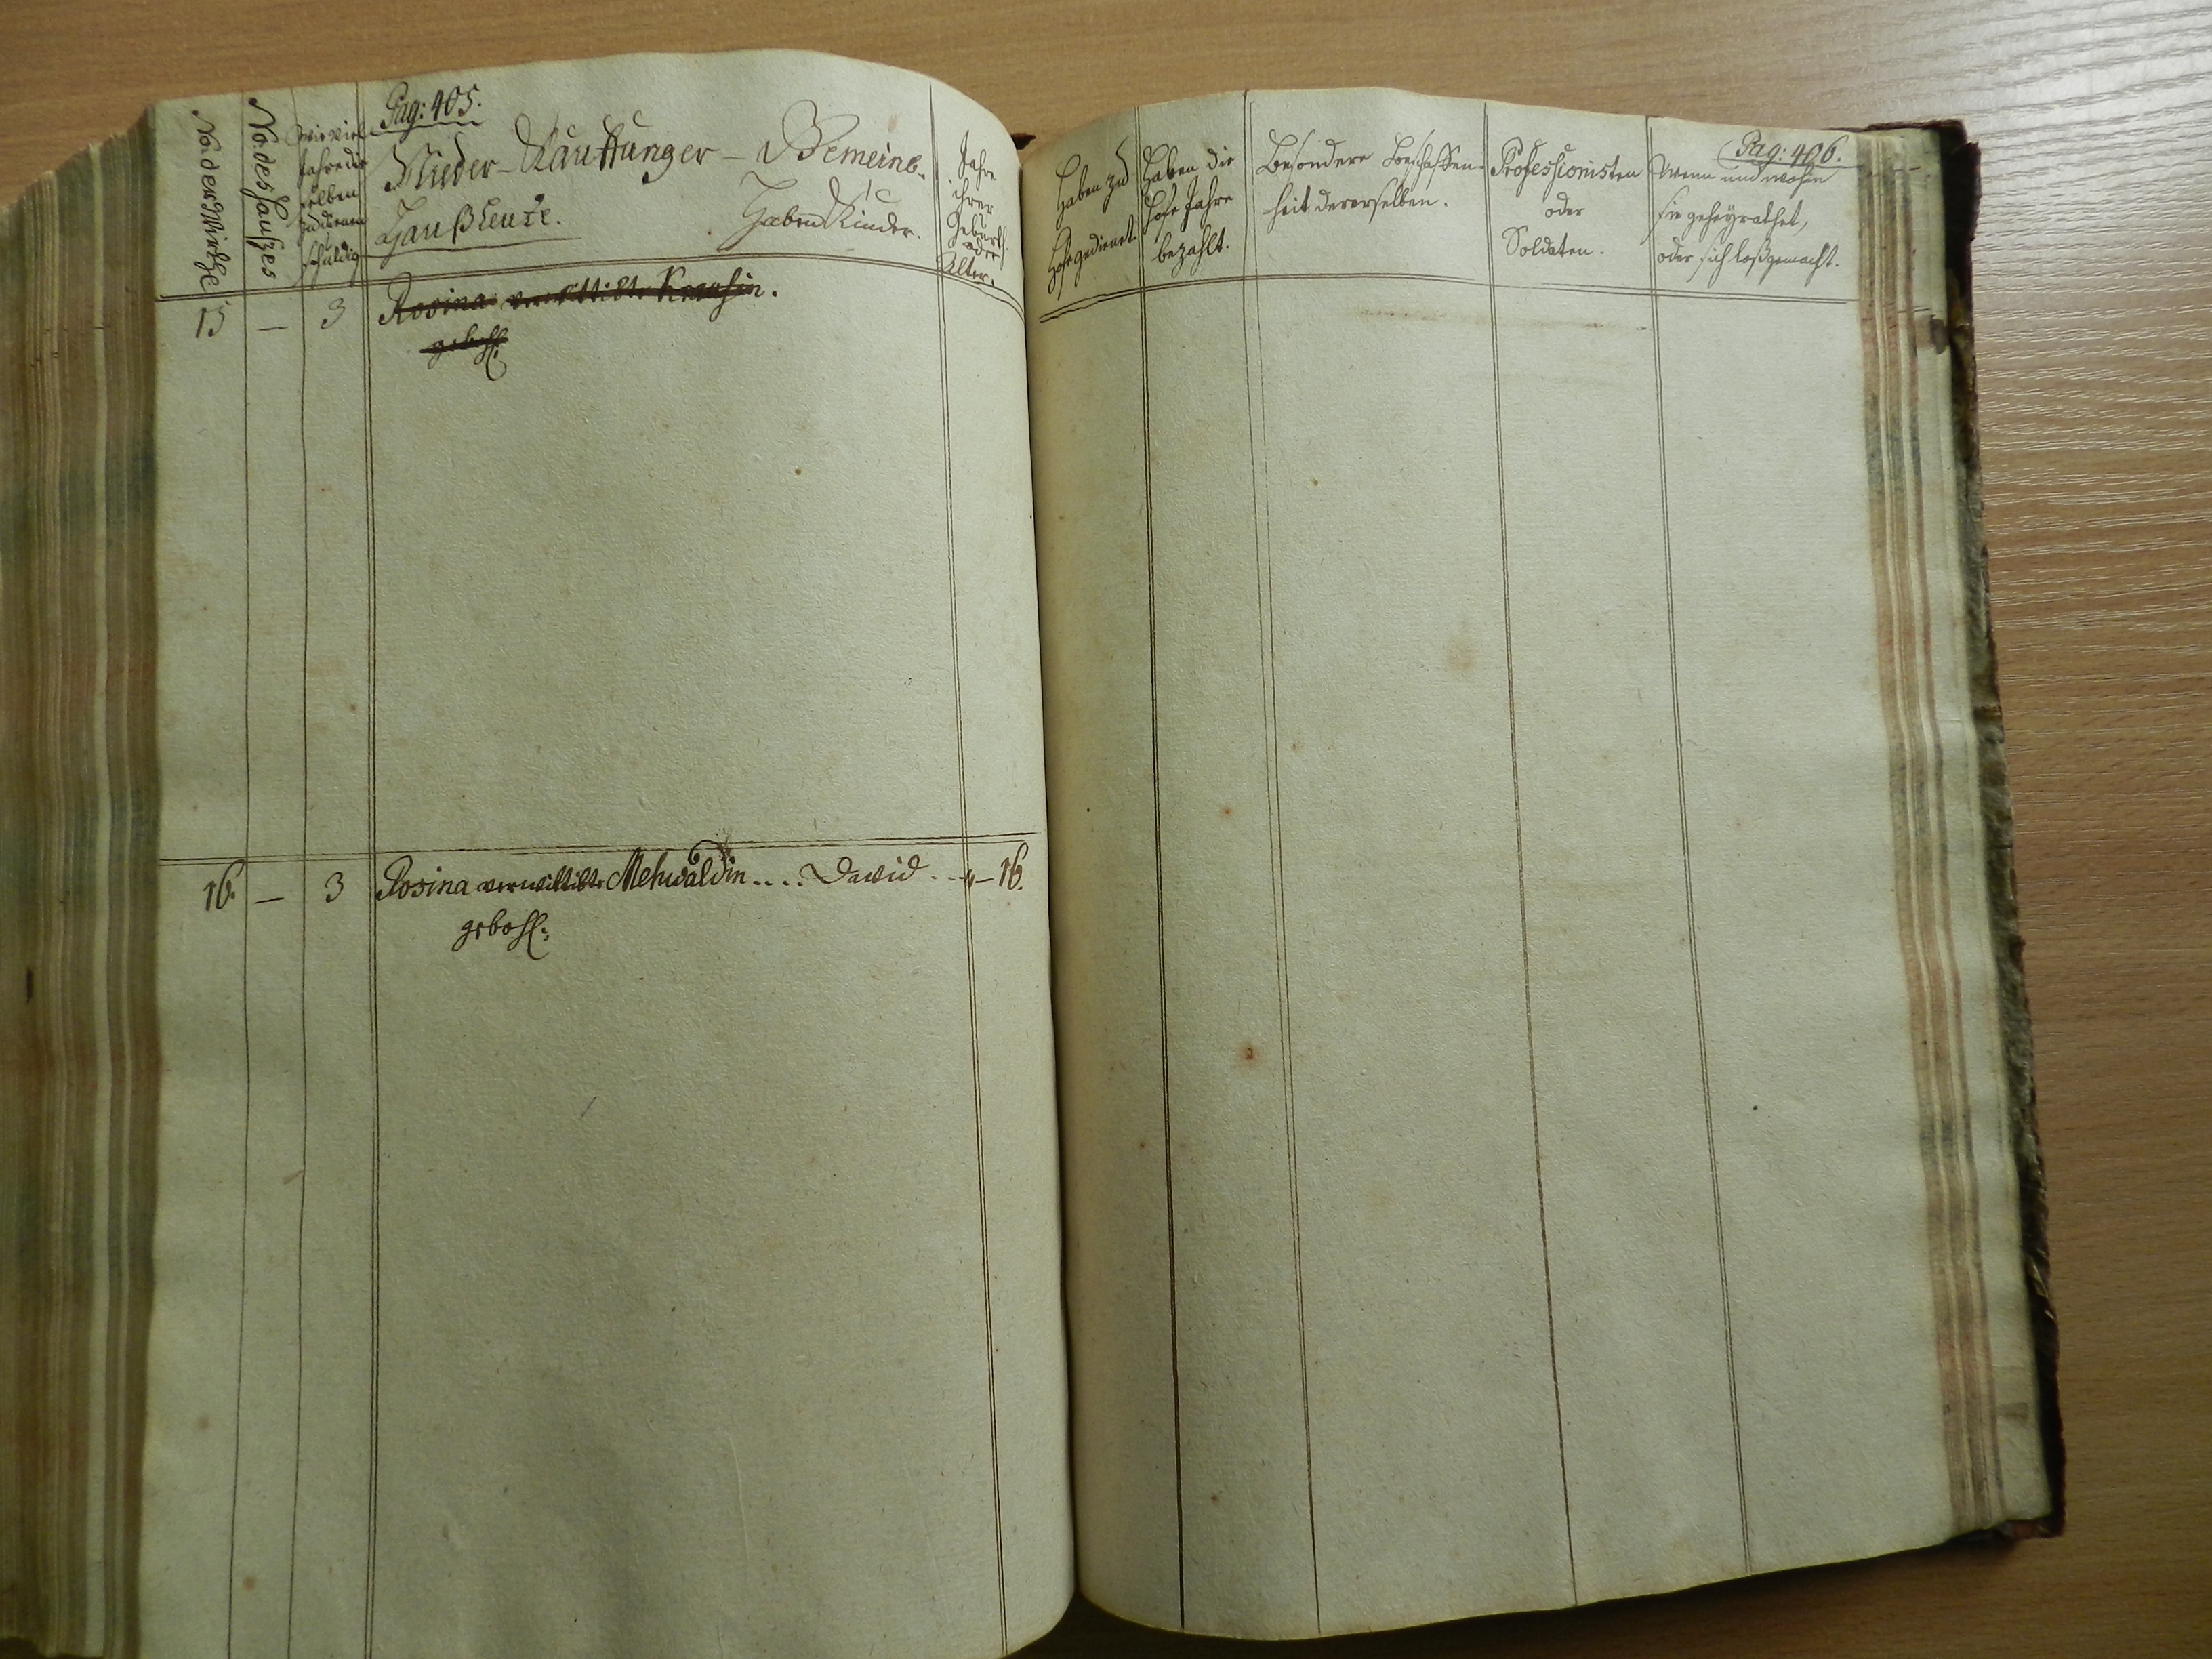 Pag: 405.
No. der Wirthe
No. des Hauses
Wie viel
Jahre die
selben
zu dienen
schuldig
Nieder-Kauffunger-Gemeine.
Haußleute.
Haben Kinder.
Jahre
ihrer
Geburth
oder
Alter.
15 — 3 Rosina verwittibte Krausin.
gebohl:
16. — 3 Rosina verwittibte Mehwaldin .... David ... — 16.
gebohl:
Pag: 406.
Haben zu
Hofe gedienet.
Haben die
Hofe Jahre
bezahlt.
Besondere Beschaffen-
heit dererselben.
Professionisten
oder
Soldaten.
Wenn und wohin
sie geheyrathet,
oder sich loßgemacht.